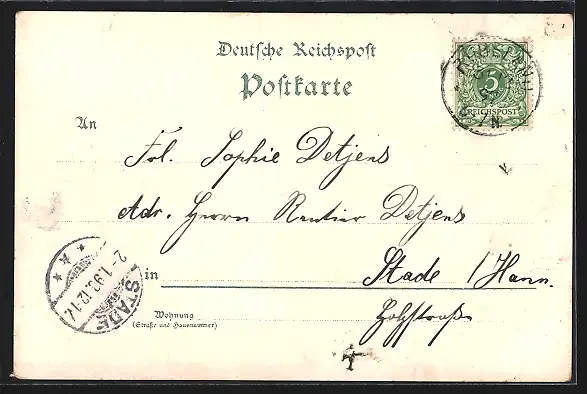 Deutsche Reichspost
Postkarte
5
REICHSPOST
An
Frl. Sophie Detjens
Adr. Herrn Rentier Detjens
in Stade / Hann.
Wohnung
(Straße und Hausnummer)
Holzstraße
STADE